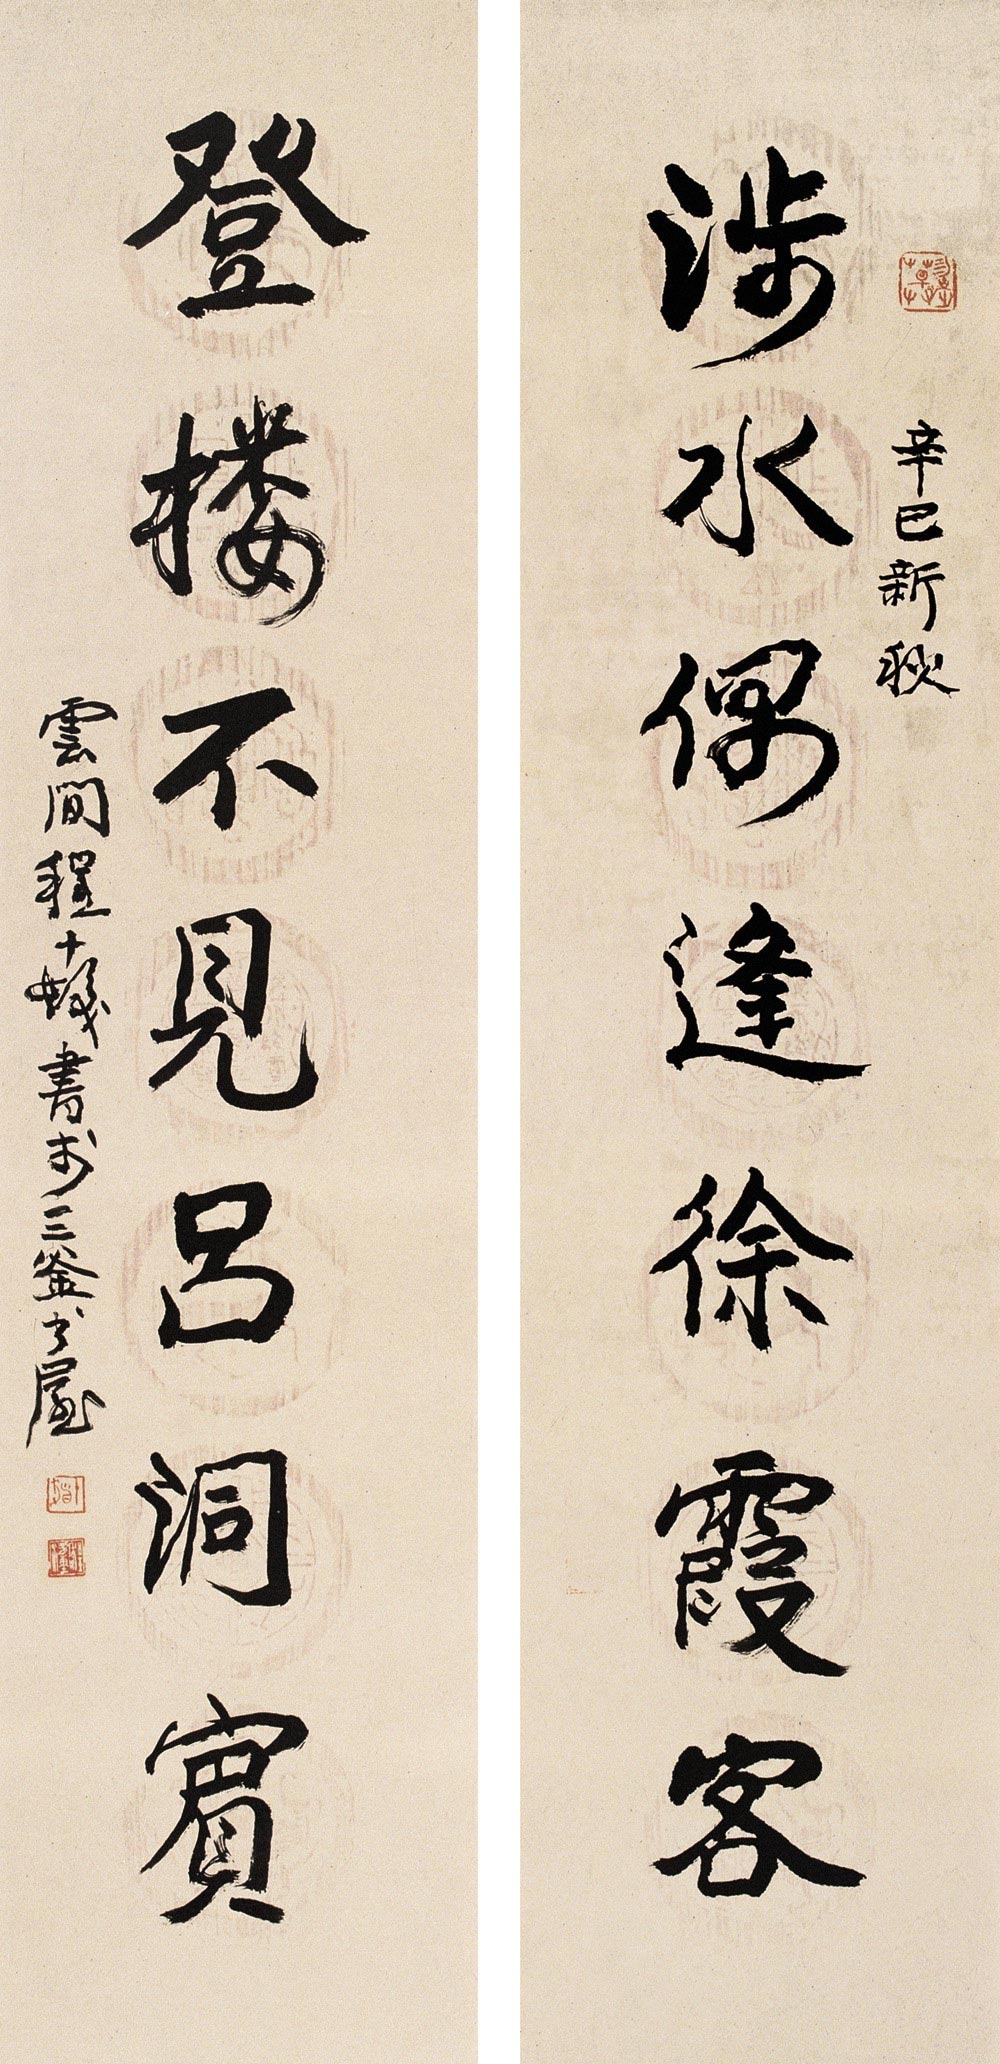 辛巳新秋
涉水偶逢徐霞客
登楼不见吕洞賓
雲間程十髮書於三釜书屋